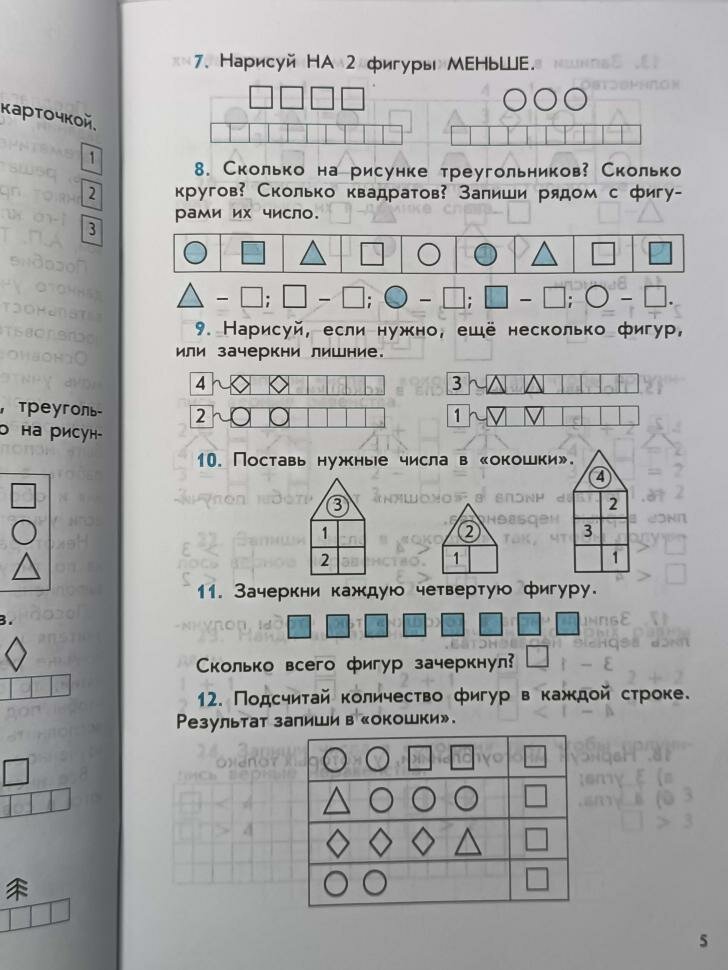 карточкой.
1
2
3
, треуголь-
о на рисун-
в.
7. Нарисуй НА 2 фигуры МЕНЬШЕ.
8. Сколько на рисунке треугольников? Сколько
кругов? Сколько квадратов? Запиши рядом с фигу-
рами их число.
– ; – ; – ; – ; – .
9. Нарисуй, если нужно, ещё несколько фигур,
или зачеркни лишние.
4 3
2 1
10. Поставь нужные числа в «окошки».
3 2 4
1 2
2 1 3
1
11. Зачеркни каждую четвертую фигуру.
Сколько всего фигур зачеркнул?
12. Подсчитай количество фигур в каждой строке.
Результат запиши в «окошки».
5